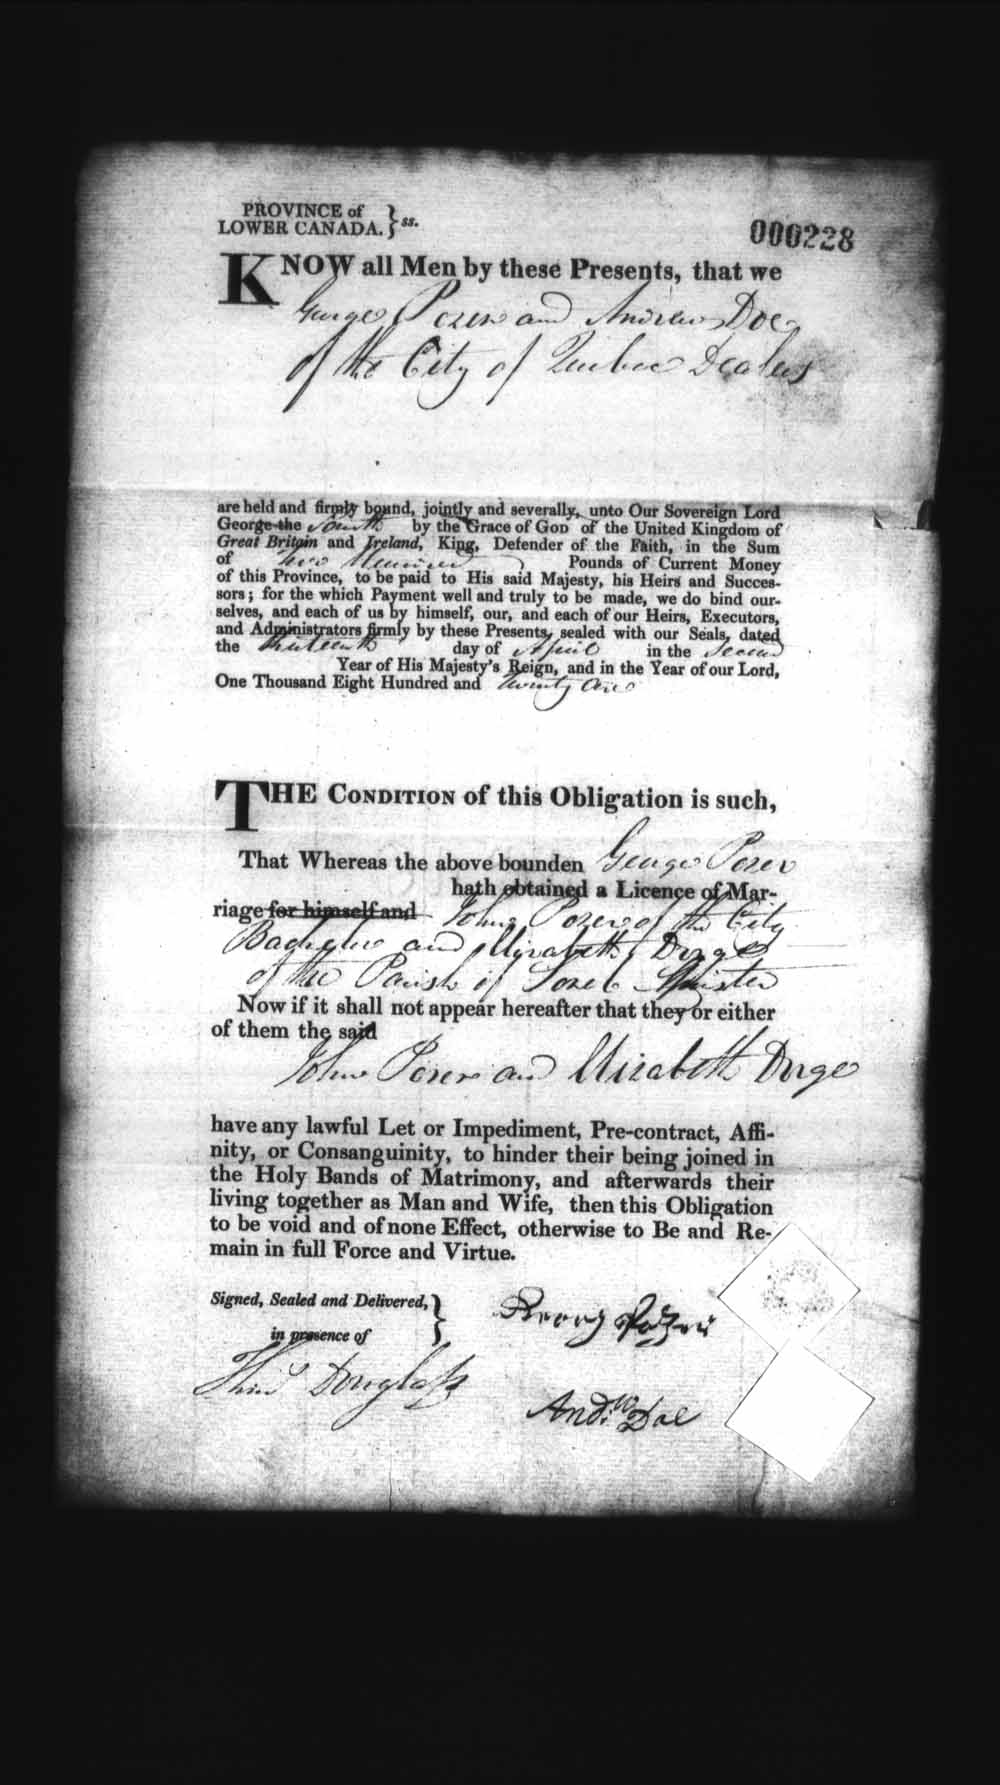 PROVINCE of
LOWER CANADA. } ss.
000228
KNOW all Men by these Presents, that we
George Pozer and Andrew Doe
of the City of Quebec Dealers
are held and firmly bound, jointly and severally, unto Our Sovereign Lord
George the fourth by the Grace of GOD of the United Kingdom of
Great Britain and Ireland, King, Defender of the Faith, in the Sum
of two Hundred Pounds of Current Money
of this Province, to be paid to His said Majesty, his Heirs and Succes-
sors; for the which Payment well and truly to be made, we do bind our-
selves, and each of us by himself, our, and each of our Heirs, Executors,
and Administrators firmly by these Presents, sealed with our Seals, dated
the thirteenth day of April in the Second
Year of His Majesty's Reign, and in the Year of our Lord,
One Thousand Eight Hundred and twenty one
THE CONDITION of this Obligation is such,
That Whereas the above bounden George Pozer
hath obtained a Licence of Mar-
riage for himself and John Pozer of the City
Bachelor and Elizabeth Dorge
of the Parish of Sorel Spinster
Now if it shall not appear hereafter that they or either
of them the said
John Pozer and Elizabeth Dorge
have any lawful Let or Impediment, Pre-contract, Affi-
nity, or Consanguinity, to hinder their being joined in
the Holy Bands of Matrimony, and afterwards their
living together as Man and Wife, then this Obligation
to be void and of none Effect, otherwise to Be and Re-
main in full Force and Virtue.
Signed, Sealed and Delivered, }
in presence of
Georg Pozer
Douglass
Andw Doe